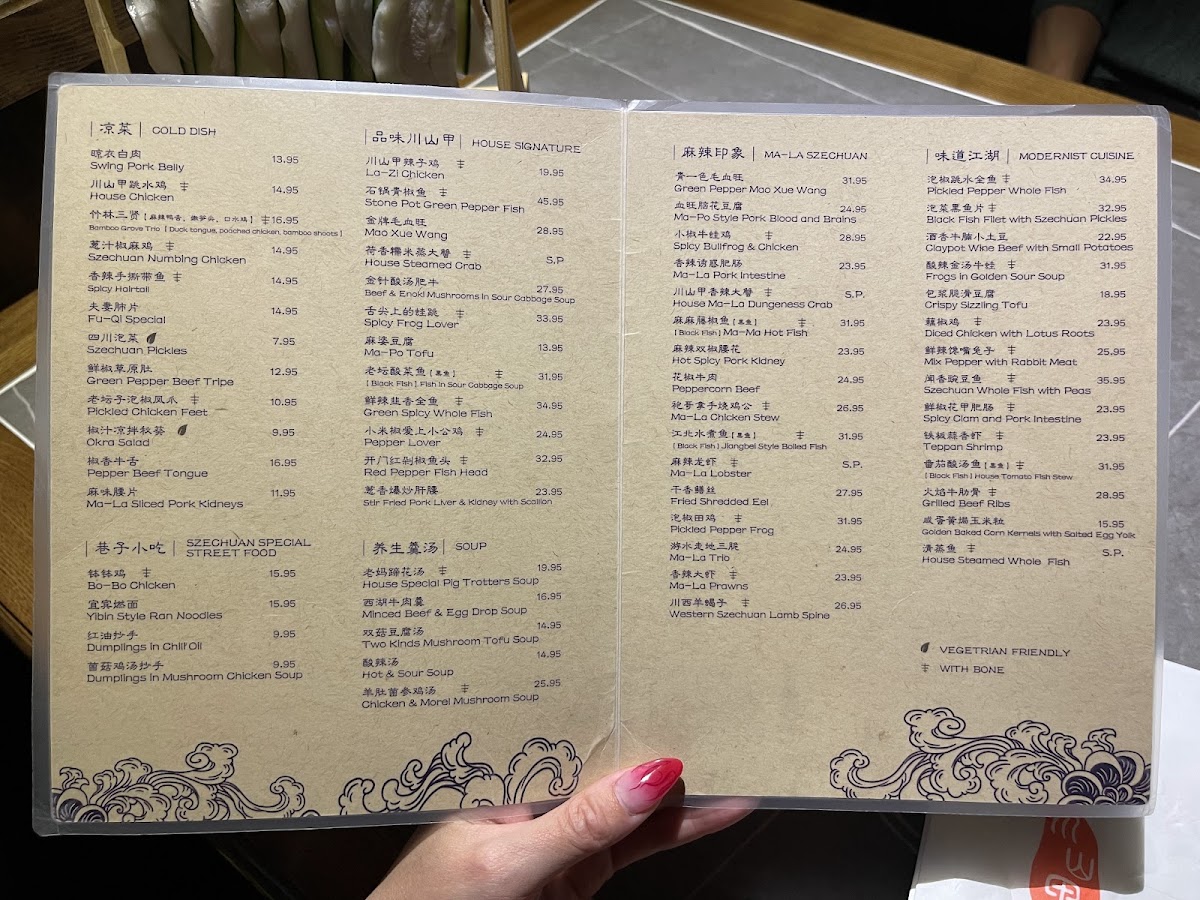 凉菜 COLD DISH
晾衣白肉
Swing Pork Belly 13.95
川山甲跳水鸡
House Chicken 14.95
竹林三贤【麻辣鸭舌、嫩笋尖、口水鸡】 16.95
Bamboo Grove Trio [ Duck tongue, poached chicken, bamboo shoots ]
葱汁椒麻鸡 14.95
Szechuan Numbing Chicken
香辣手撕带鱼 14.95
Spicy Hairtail
夫妻肺片 14.95
Fu-Qi Special
四川泡菜 7.95
Szechuan Pickles
鲜椒草原肚 12.95
Green Pepper Beef Tripe
老坛子泡椒凤爪 10.95
Pickled Chicken Feet
椒汁凉拌秋葵 9.95
Okra Salad
椒香牛舌 16.95
Pepper Beef Tongue
麻味腰片 11.95
Ma-La Sliced Pork Kidneys
巷子小吃 SZECHUAN SPECIAL
STREET FOOD
钵钵鸡 15.95
Bo-Bo Chicken
宜宾燃面 15.95
Yibin Style Ran Noodles
红油抄手 9.95
Dumplings in Chili Oil
菌菇鸡汤抄手 9.95
Dumplings in Mushroom Chicken Soup
品味川山甲 HOUSE SIGNATURE
川山甲辣子鸡 19.95
La-Zi Chicken
石锅青椒鱼 45.95
Stone Pot Green Pepper Fish
金牌毛血旺 28.95
Mao Xue Wang
荷香糯米蒸大蟹 S.P
House Steamed Crab
金针酸汤肥牛 27.95
Beef & Enoki Mushrooms in Sour Cabbage Soup
舌尖上的蛙跳 33.95
Spicy Frog Lover
麻婆豆腐 13.95
Ma-Po Tofu
老坛酸菜鱼【黑鱼】 31.95
[ Black Fish ] Fish in Sour Cabbage Soup
鲜辣韭香全鱼 34.95
Green Spicy Whole Fish
小米椒爱上小公鸡 24.95
Pepper Lover
开门红剁椒鱼头 32.95
Red Pepper Fish Head
葱香爆炒肝腰 23.95
Stir Fried Pork Liver & Kidney with Scallion
养生羹汤 SOUP
老妈蹄花汤 19.95
House Special Pig Trotters Soup
西湖牛肉羹 16.95
Minced Beef & Egg Drop Soup
双菇豆腐汤 14.95
Two Kinds Mushroom Tofu Soup
酸辣汤 14.95
Hot & Sour Soup
羊肚菌参鸡汤 25.95
Chicken & Morel Mushroom Soup
麻辣印象 MA-LA SZECHUAN
青一色毛血旺 31.95
Green Pepper Mao Xue Wang
血旺脑花豆腐 24.95
Ma-Po Style Pork Blood and Brains
小椒牛蛙鸡 28.95
Spicy Bullfrog & Chicken
香辣诱惑肥肠 23.95
Ma-La Pork Intestine
川山甲香辣大蟹 S.P.
House Ma-La Dungeness Crab
麻麻藤椒鱼【黑鱼】 31.95
[ Black Fish ] Ma-Ma Hot Fish
麻辣双椒腰花 23.95
Hot Spicy Pork Kidney
花椒牛肉 24.95
Peppercorn Beef
袍哥拿手烧鸡公 26.95
Ma-La Chicken Stew
江北水煮鱼【黑鱼】 31.95
[ Black Fish ] Jiangbei Style Boiled Fish
麻辣龙虾 S.P.
Ma-La Lobster
干香鳝丝 27.95
Fried Shredded Eel
泡椒田鸡 31.95
Pickled Pepper Frog
游水走地三脆 24.95
Ma-La Trio
香辣大虾 23.95
Ma-La Prawns
川西羊蝎子 26.95
Western Szechuan Lamb Spine
味道江湖 MODERNIST CUISINE
泡椒跳水全鱼 34.95
Pickled Pepper Whole Fish
泡菜黑鱼片 32.95
Black Fish Filet with Szechuan Pickles
酒香牛腩小土豆 22.95
Claypot Wine Beef with Small Potatoes
酸辣金汤牛蛙 31.95
Frogs in Golden Sour Soup
包浆脆滑豆腐 18.95
Crispy Sizzling Tofu
藕椒鸡 23.95
Diced Chicken with Lotus Roots
鲜辣馋嘴兔子 25.95
Mix Pepper with Rabbit Meat
闻香豌豆鱼 35.95
Szechuan Whole Fish with Peas
鲜椒花甲肥肠 23.95
Spicy Clam and Pork Intestine
铁板蒜香虾 23.95
Teppan Shrimp
番茄酸汤鱼【黑鱼】 31.95
[ Black Fish ] House Tomato Fish Stew
火焰牛肋骨 28.95
Grilled Beef Ribs
咸蛋黄焗玉米粒 15.95
Golden Baked Corn Kernels with Salted Egg Yolk
清蒸鱼 S.P.
House Steamed Whole Fish
VEGETRIAN FRIENDLY
WITH BONE